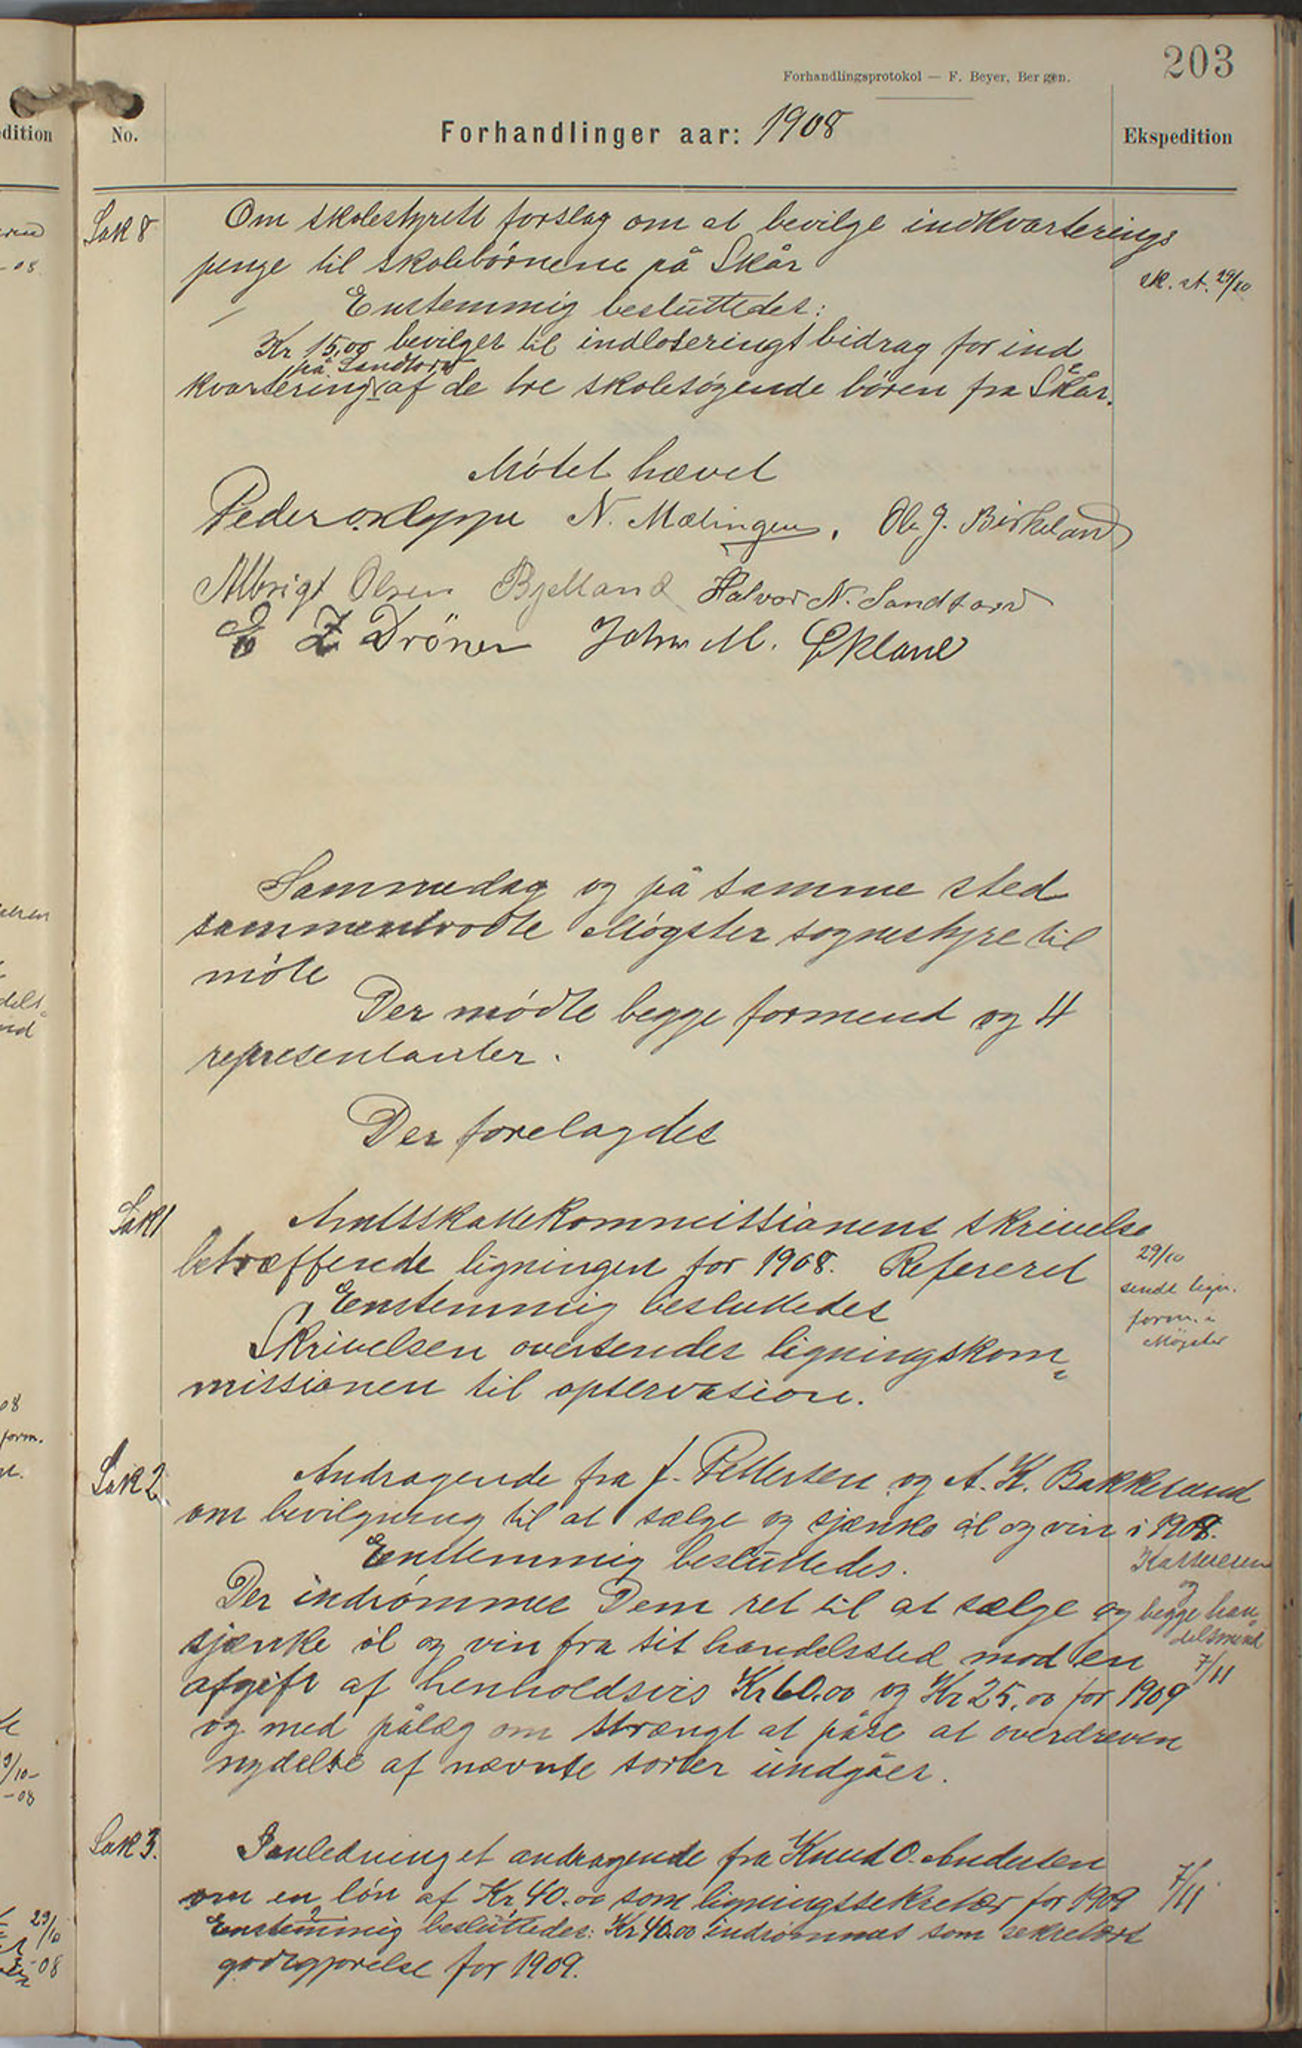 203
Forhandlingsprotokol — F. Beyer, Bergen.
dition
No.
Forhandlinger aar: 1908
Ekspedition
Sak 8
Om skolestyrets forslag om at bevilge indkvarterings
penge til skolebörnene på Skår
sk. st. 29/10
Enstemmig besluttedes:
Kr 15,00 bevilges til indloseringsbidrag for ind
på Sandtorv
kvartering af de tre skolesøgende bören fra Skår.
Mötet hævet
Peder O. Kleppe N. Mælingen. Ole J. Birkeland
Albrigt Olsen Bjelland Halvor N. Sandtorv
E Z Drönen John M. Ekland
Sammedag og på samme sted
sammentrådte Møgster sognestyre til
möte
Der mødte begge formend og 4
representanter.
Der forelagdes
Sak 1
Amtsskattekommissionens skrivelse
betræffende ligningen for 1908. Refereret
29/10
sendt lign.
form. i
Møgster
Enstemmig besluttedes
Skrivelsen oversendes ligningskom=
missionen til opservasion.
Sak 2
Andragende fra J. Pettersen og A. K. Bakkesund
om bevilgning til at sælge og sjænke öl og vin i 1908.
Enstemmig besluttedes.
Kassereren
og
begge han
delsmend
7/11
Der indrömmes Dem ret til at sælge og
sjænke öl og vin fra sit handelssted mod en
afgift af henholdsvis Kr 60.00 og Kr 25.00 for 1909
og med pålæg om strængt at påse at overdreven
nydelse af nævnte sorter undgåes.
Sak 3.
I anledning et andragende fra Knud O. Andersen
om en lön af Kr 40.00 som ligningssekretær for 1909
7/11
Enstemmig besluttedes: Kr 40.00 indrömmes som sekretærs
godtgjörelse for 1909.